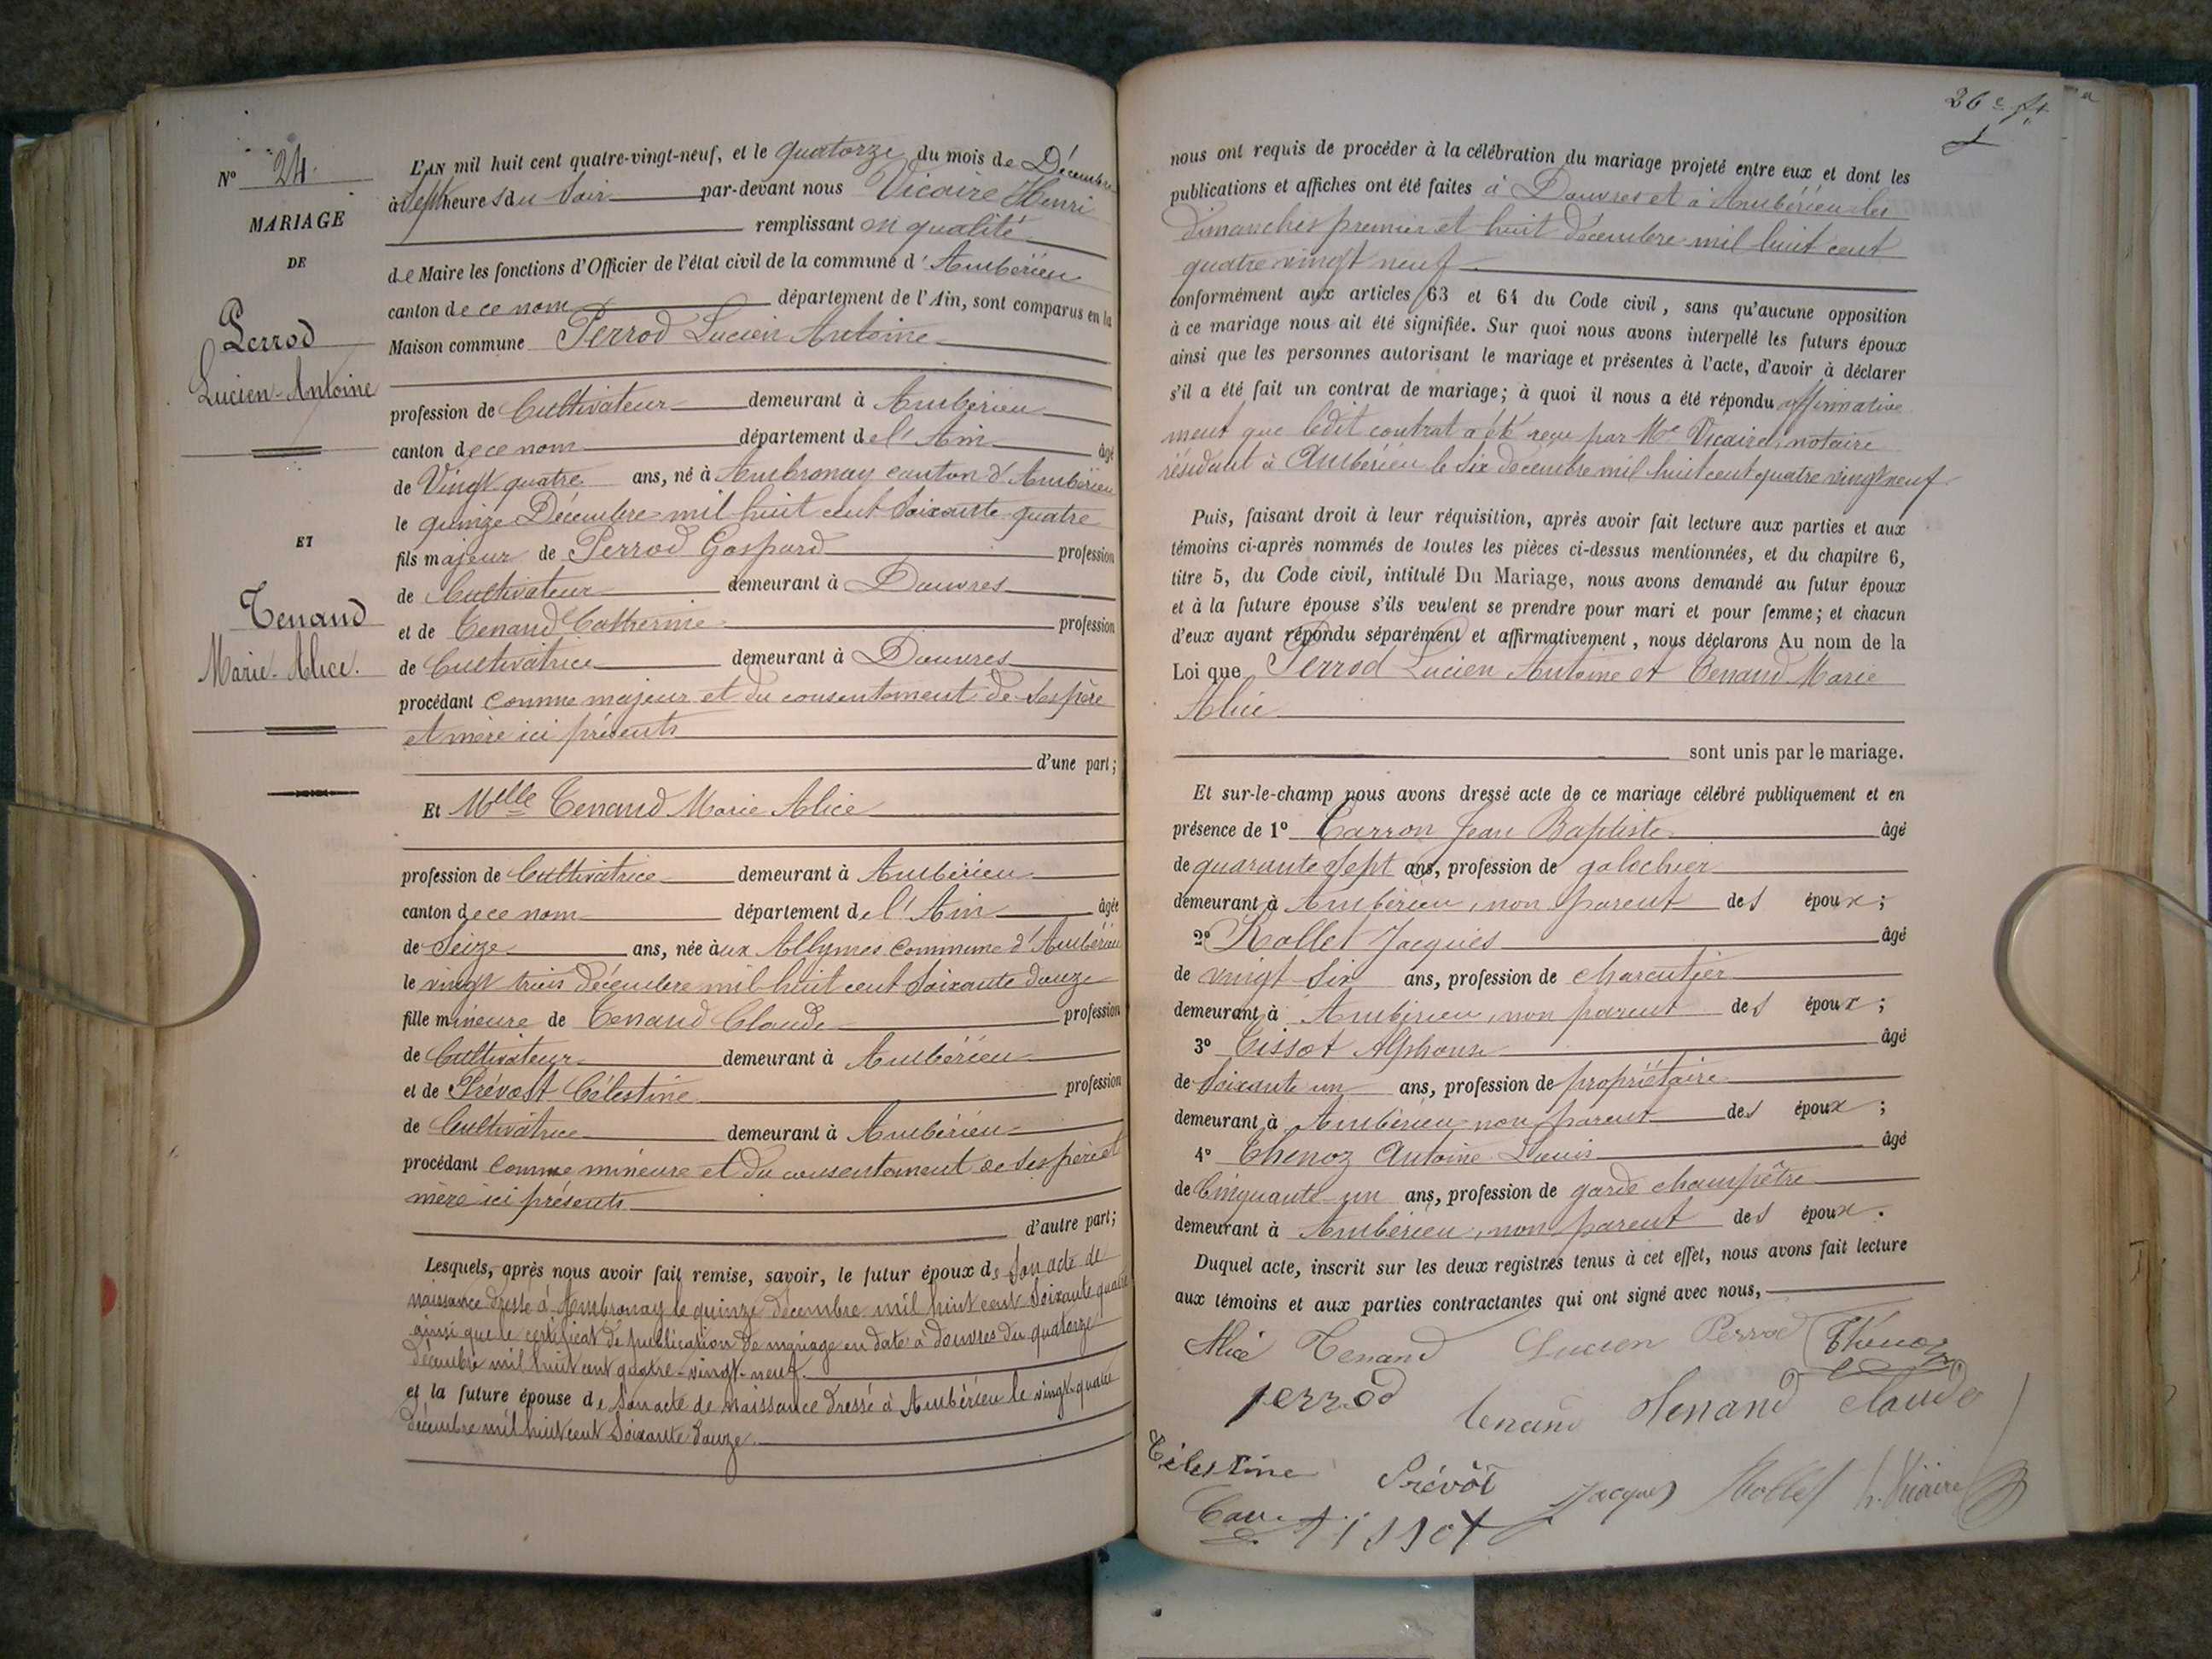 N° 24.
MARIAGE
DE
Perrod
Lucien-Antoine
ET
Tenand
Marie-Alice.
L'AN mil huit cent quatre-vingt-neuf, et le quatorze du mois de Décembre
à sept heures du soir par-devant nous Vicaire Henri
remplissant en qualité
de Maire les fonctions d'Officier de l'état civil de la commune d'Ambérieu
canton de ce nom département de l'Ain, sont comparus en la
Maison commune Perrod Lucien Antoine
profession de Cultivateur demeurant à Ambérieu
canton de ce nom département de l'Ain âgé
de Vingt quatre ans, né à Ambronay canton d'Ambérieu
le quinze Décembre mil huit cent soixante quatre
fils majeur de Perrod Gaspard profession
de Cultivateur demeurant à Douvres
et de Tenand Catherine profession
de Cultivatrice demeurant à Douvres
procédant comme majeur et du consentement de ses père
et mère ici présents
d'une part;
Et Melle Tenand Marie Alice
profession de Cultivatrice demeurant à Ambérieu
canton de ce nom département de l'Ain âgée
de Seize ans, née aux Allymes commune d'Ambérieu
le vingt trois décembre mil huit cent soixante douze
fille mineure de Tenand Claude profession
de Cultivateur demeurant à Ambérieu
et de Prévost Célestine profession
de Cultivatrice demeurant à Ambérieu
procédant comme mineure et du consentement de ses père et
mère ici présents
d'autre part;
Lesquels, après nous avoir fait remise, savoir, le futur époux de son acte de
naissance dressé à Ambronay le quinze décembre mil huit cent soixante quatre
ainsi que le certificat de publication de mariage en date à douvres du quatorze
décembre mil huit cent quatre-vingt-neuf.
et la future épouse de son acte de naissance dressé à Ambérieu le vingt-quatre
décembre mil huit cent soixante douze.
26e ft
nous ont requis de procéder à la célébration du mariage projeté entre eux et dont les
publications et affiches ont été faites à Douvres et à Ambérieu les
dimanches premier et huit décembre mil huit cent
quatre vingt neuf
conformément aux articles 63 et 64 du Code civil, sans qu'aucune opposition
à ce mariage nous ait été signifiée. Sur quoi nous avons interpellé les futurs époux
ainsi que les personnes autorisant le mariage et présentes à l'acte, d'avoir à déclarer
s'il a été fait un contrat de mariage; à quoi il nous a été répondu affirmative
ment que ledit contrat a été reçu par Me Vicaire, notaire
résidant à Ambérieu le six décembre mil huit cent quatre vingt neuf
Puis, faisant droit à leur réquisition, après avoir fait lecture aux parties et aux
témoins ci-après nommés de toutes les pièces ci-dessus mentionnées, et du chapitre 6,
titre 5, du Code civil, intitulé Du Mariage, nous avons demandé au futur époux
et à la future épouse s'ils veulent se prendre pour mari et pour femme; et chacun
d'eux ayant répondu séparément et affirmativement, nous déclarons Au nom de la
Loi que Perrod Lucien Antoine et Tenand Marie
Alice
sont unis par le mariage.
Et sur-le-champ nous avons dressé acte de ce mariage célébré publiquement et en
présence de 1° Carron Jean Baptiste âgé
de quarante sept ans, profession de galochier
demeurant à Ambérieu, non parent des époux;
2° Rollet Jacques âgé
de vingt six ans, profession de charcutier
demeurant à Ambérieu, non parent des époux;
3° Tissot Alphonse âgé
de soixante un ans, profession de propriétaire
demeurant à Ambérieu non parent des époux;
4° Thenoz Antoine Louis âgé
de Cinquante-un ans, profession de garde champêtre
demeurant à Ambérieu, non parent des époux.
Duquel acte, inscrit sur les deux registres tenus à cet effet, nous avons fait lecture
aux témoins et aux parties contractantes qui ont signé avec nous,
Alice Tenand Lucien Perrod Thenoz
perrod tenand tenand claude
Célestine Prévôt Jacques Rollet h. Vicaire
Tissot